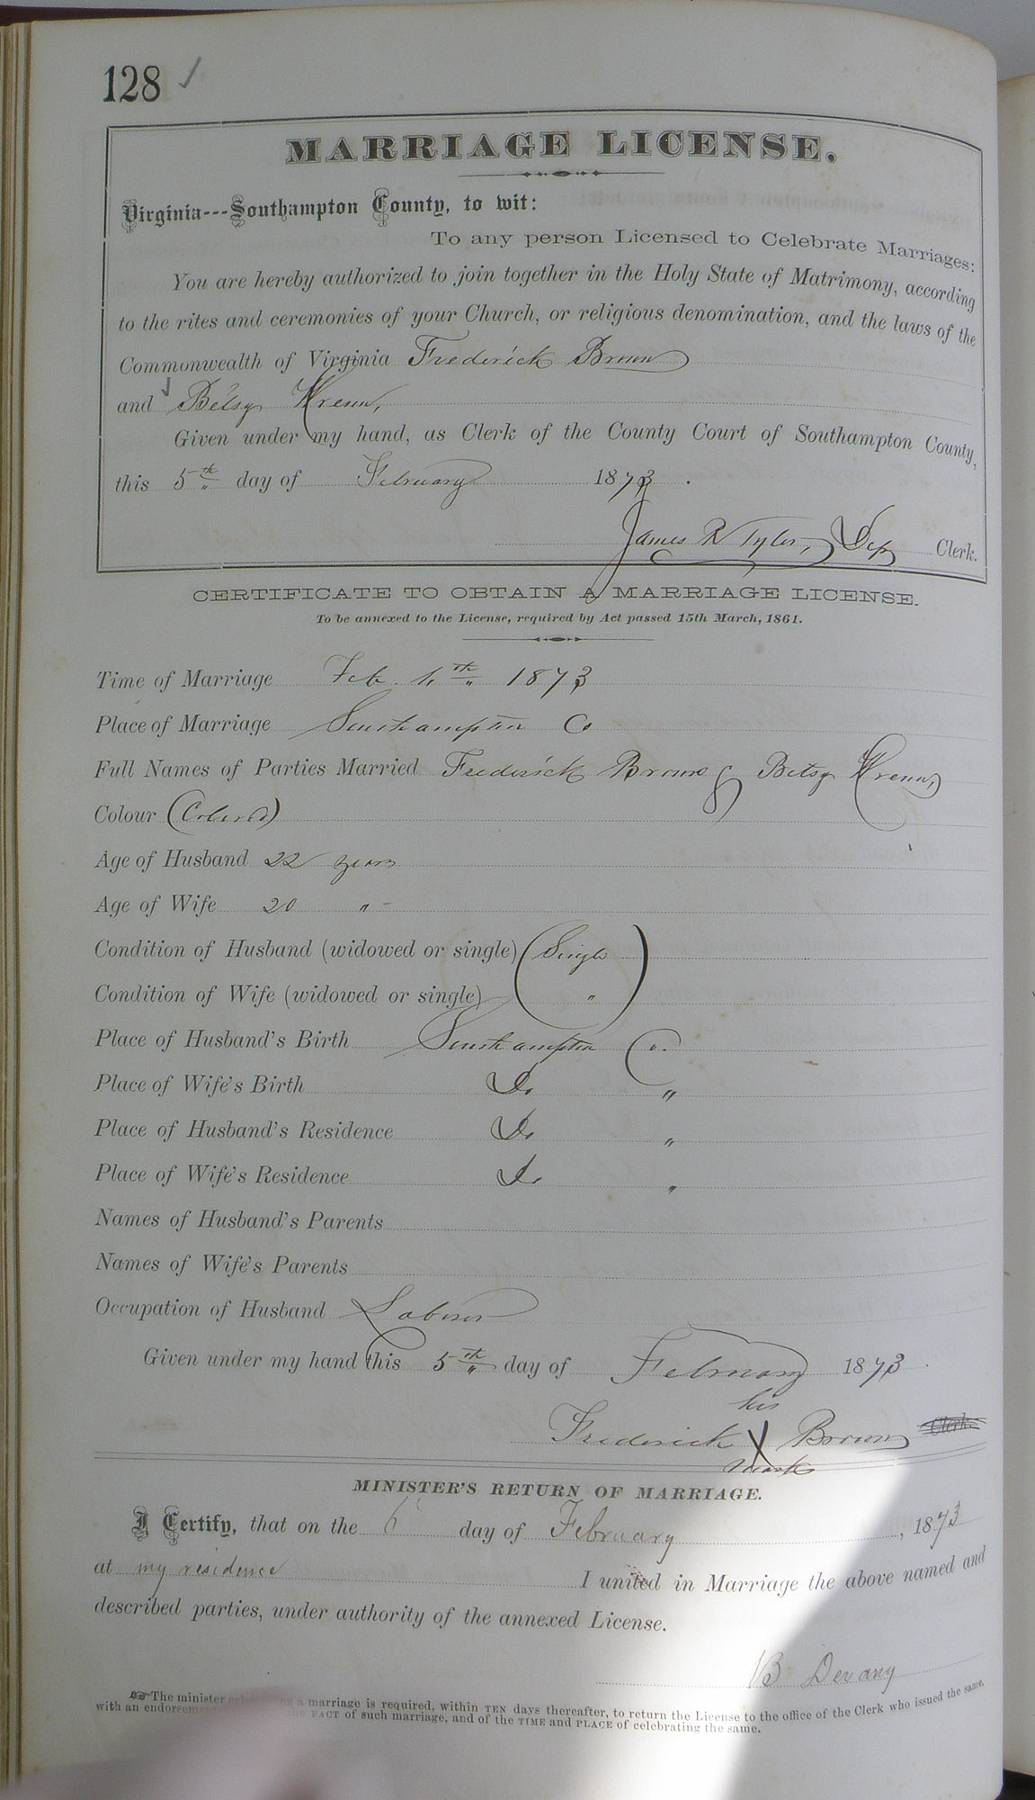 128 ✓
MARRIAGE LICENSE.
Virginia---Southampton County, to wit:
To any person Licensed to Celebrate Marriages:
You are hereby authorized to join together in the Holy State of Matrimony, according
to the rites and ceremonies of your Church, or religious denomination, and the laws of the
Commonwealth of Virginia Frederick Brown
and Betsy
Given under my hand, as Clerk of the County Court of Southampton County,
this 5th day of February 1873.
James R Tyler, Dep Clerk.
CERTIFICATE TO OBTAIN A MARRIAGE LICENSE.
To be annexed to the License, required by Act passed 15th March, 1861.
Time of Marriage Feb. 6th 1873
Place of Marriage Southampton Co
Full Names of Parties Married Frederick Brown & Betsy
Colour (Colored)
Age of Husband 22 years
Age of Wife 20 "
Condition of Husband (widowed or single) (Single)
Condition of Wife (widowed or single) "
Place of Husband's Birth Southampton Co.
Place of Wife's Birth Do "
Place of Husband's Residence Do "
Place of Wife's Residence Do "
Names of Husband's Parents
Names of Wife's Parents
Occupation of Husband Laborer
Given under my hand this 5th day of February 1873
his
Frederick X Brown Clerk.
mark
MINISTER'S RETURN OF MARRIAGE.
I Certify, that on the 6 day of February, 1873
at my residence I united in Marriage the above named and
described parties, under authority of the annexed License.
B Devany
The minister a marriage is required, within TEN days thereafter, to return the License to the office of the Clerk who issued the same,
with an the FACT of such marriage, and of the TIME and PLACE of celebrating the same.